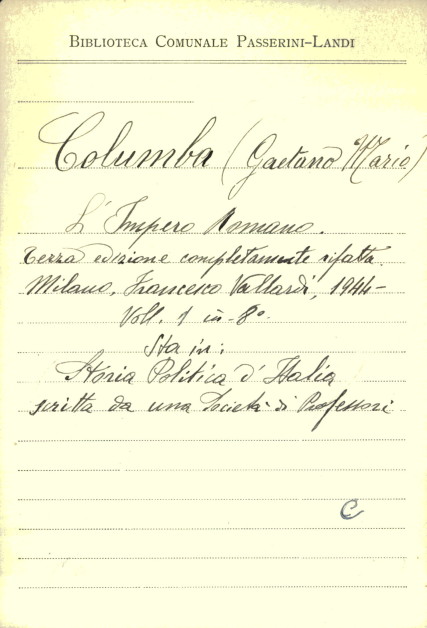 BIBLIOTECA COMUNALE PASSERINI-LANDI
Columba (Gaetano Mario)
L'Impero Romano.
Terza edizione completamente rifatta.
Milano, Francesco Vallardi, 1944-
Voll. 1 in-8º
Sta in:
Storia Politica d'Italia
scritta da una Società di Professori
C